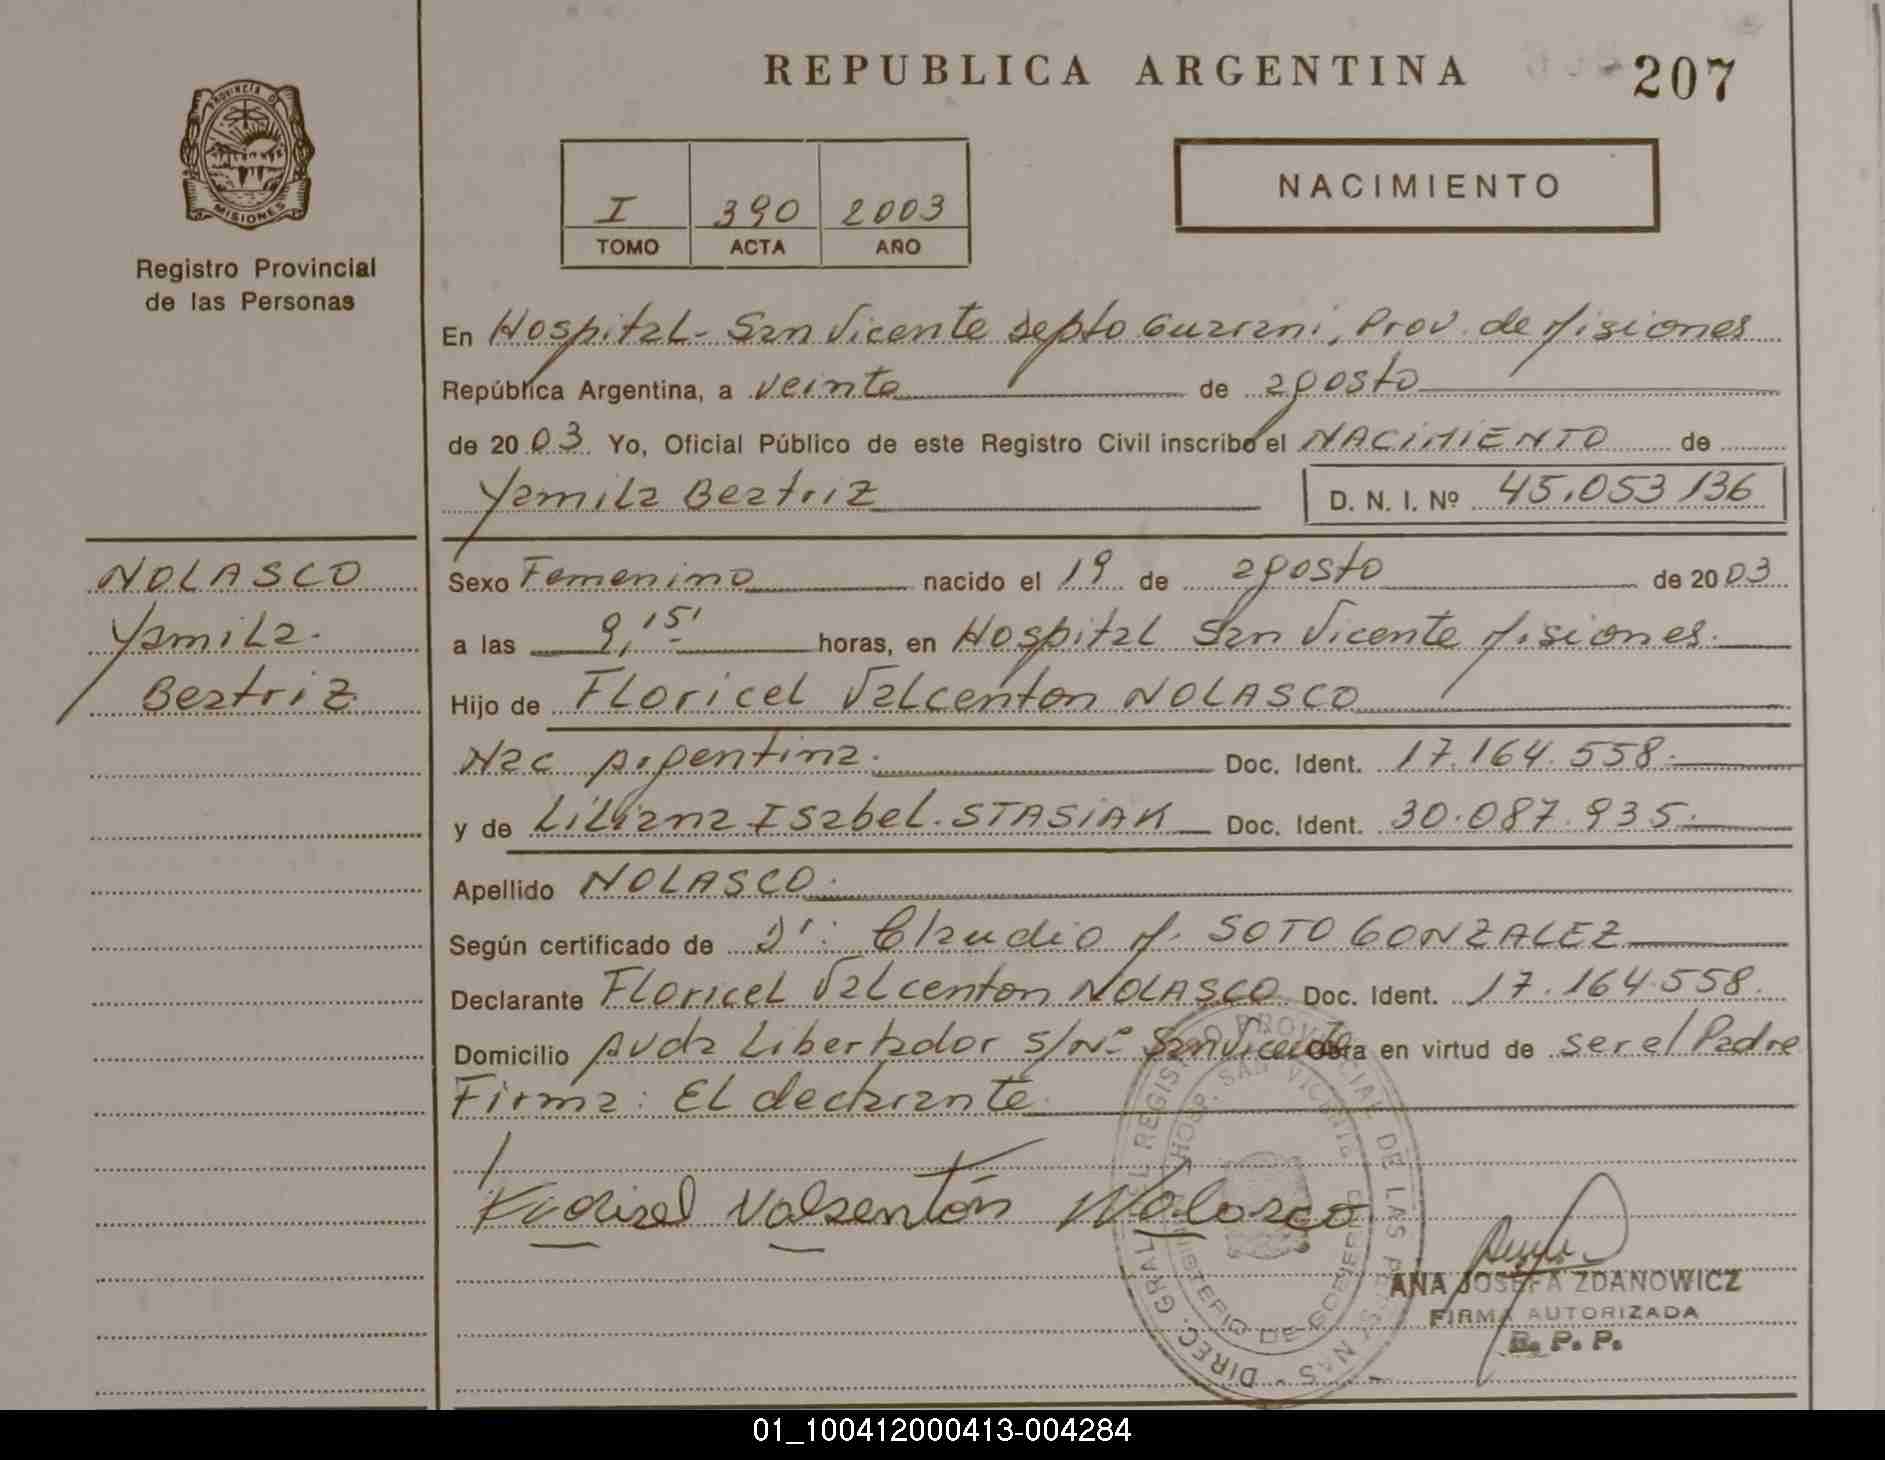 REPUBLICA ARGENTINA 207
PROVINCIA DE
MISIONES
Registro Provincial
de las Personas
I 390 2003
TOMO ACTA AÑO
NACIMIENTO
En Hospital - San Vicente Depto Guarani, Prov. de Misiones
República Argentina, a veinte de agosto
de 2003. Yo, Oficial Público de este Registro Civil inscribo el NACIMIENTO de
Yamila Beatriz D. N. I. Nº 45.053 136
NOLASCO
Yamila.
Beatriz
Sexo Femenino nacido el 19 de agosto de 2003
a las 9,15' horas, en Hospital San Vicente Misiones.
Hijo de Floricel Valcenton NOLASCO
Nac Argentina. Doc. Ident. 17.164.558.
y de Liliana Isabel. STASIAK Doc. Ident. 30.087.935.
Apellido NOLASCO.
Según certificado de Dr: Claudio M. SOTO GONZALEZ
Declarante Floricel Valcenton NOLASCO Doc. Ident. 17.164.558.
Domicilio Avda Libertador s/Nº San Vicente Obra en virtud de ser el Padre
Firma: El declarante.
Valsentón Nolasco
DIREC. GRAL. DEL REGISTRO PROVINCIAL DE LAS PERSONAS -
HOSP. SAN VICENTE
MINISTERIO DE GOBIERNO
ANA JOSEFA ZDANOWICZ
FIRMA AUTORIZADA
R. P. P.
01_100412000413-004284